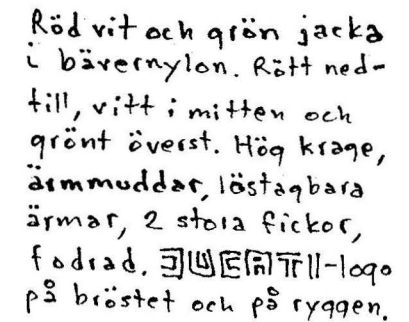 Röd vit och grön jacka
i bävernylon. Rött ned-
till, vitt i mitten och
grönt överst. Hög krage,
ärmmuddar, löstagbara
ärmar, 2 stora fickor,
fodrad. DUCATI-logo
på bröstet och på ryggen.